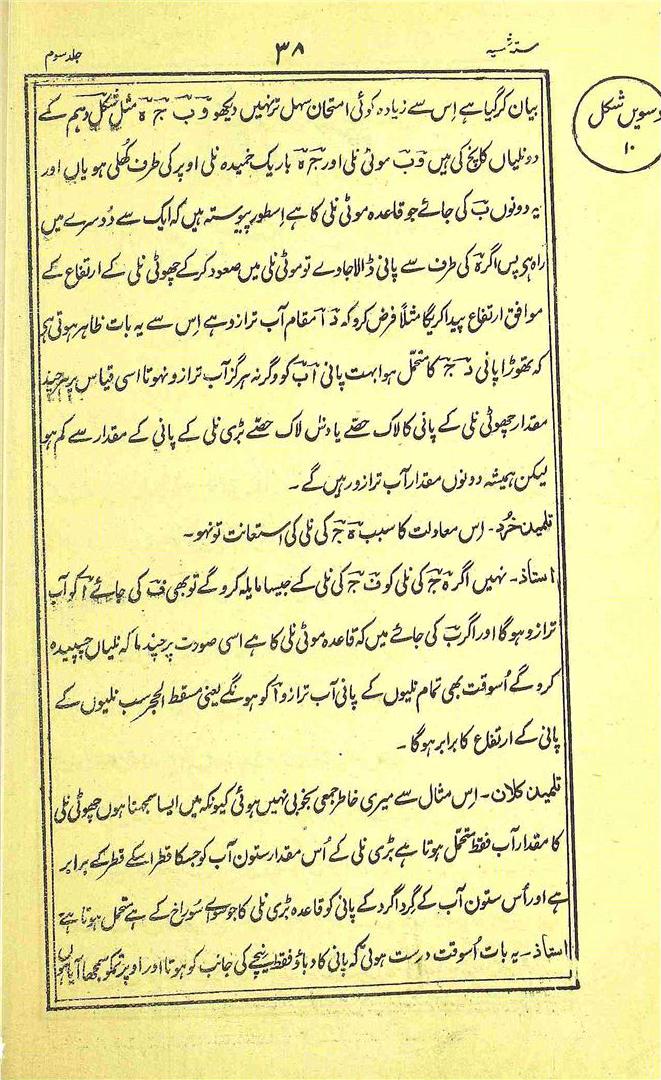 ستہ شمسیہ
۳۸
جلد سوم
دسویں شکل
۱۰
بیان کر گیا ہے اِس سے زیادہ کوئی امتحان سہل تر نہیں دیکھو وَ بَ جَ ہَ مثل شکل دہم کے
دو نلیاں کانچ کی ہیں وَ بَ موٹی نلی اور جَ ہَ باریک خمیدہ نلی اوپر کی طرف کُھلی ہویاں اور
یہ دونوں بَ کی جائے جو قاعدہ موٹی نلی کا ہے اسطور پیوستہ ہیں کہ ایک سے دُوسرے میں
راہ ہی پس اگر ہَ کی طرف سے پانی ڈالا جاوے تو موٹی نلی میں صعود کر کے چھوٹی نلی کے ارتفاع کے
موافق ارتفاع پیدا کریگا مثلاً فرض کرو کہ دَ اَ مقام آب ترازو ہے اِس سے یہ بات ظاہر ہوتی ہی
کہ تھوڑا پانی دَ جَ کا متحمل ہوا بہت پانی اَ بَ کو وگرنہ ہرگز آب ترازو نہوتا اسی قیاس پر ہر چند
مقدار چھوٹی نلی کے پانی کا لاک حصّے یا دس لاک حصّے بڑی نلی کے پانی کے مقدار سے کم ہو
لیکن ہمیشہ دونوں مقدار آب ترازو رہیں گے ۔
تلمیذ خُرد ۔ اِس معاولت کا سبب ہَ جَ کی نلی کی استعانت تو نہو ۔
اُستاذ ۔ نہیں اگر ہَ جَ کی نلی کو فَ جَ کی نلی کے جیسا مایلہ کروگے تو بھی فَ کی جائے اَ کو آب
ترازو ہوگا اور اگر بَ کی جائے میں کہ قاعدہ موٹی نلی کا ہے اسی صورت پر چند ما کہ نلیاں چسپیدہ
کروگے اُسوقت بھی تمام نلیوں کے پانی آب ترازو اَ کو ہونگے یعنی مسقط الحجر سب نلیوں کے
پانی کے ارتفاع کا برابر ہوگا ۔
تلمیذ کلان ۔ اِس مثال سے میری خاطر جمعی بخوبی نہیں ہوئی کیونکہ میں ایسا سمجھتا ہوں چھوٹی نلی
کا مقدار آب فقط متحمل ہوتا ہے بڑی نلی کے اُس مقدار ستون آب کو جسکا قطر اسکے قطر کے برابر
ہے اور اُس ستون آب کے گِرد اگرد کے پانی کو قاعدہ بڑی نلی کا جو سواے سوراخ کے ہے متحمل ہوتا ہے
اُستاذ ۔ یہ بات اُسوقت درست ہوتی کہ پانی کا دباؤ فقط نیچے کی جانب کو ہوتا اور اوپر تمکو سمجھا آیا ہوں